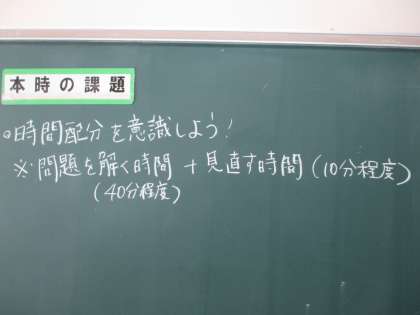 本時の課題
○時間配分を意識しよう!
※問題を解く時間 + 見直す時間(10分程度)
(40分程度)